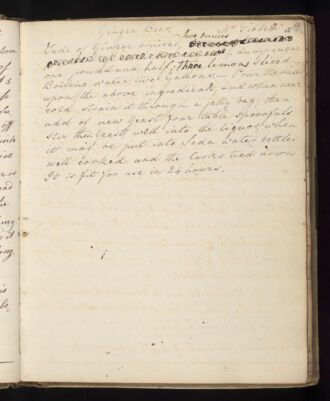 Ginger Beer
Take of Ginger bruised, two Ounces
lump sugar
one pound and half, three lemons sliced
Boiling water two Gallons. Pour the water
upon the above ingredients, and when near
cold strain it through a jelly bag, then
add of new yeast four table spoonfuls
Stir the yeast well into the liquor, when
it may be put into Soda water bottles
well corked and the Corks tied down
It is fit for use in 24 hours.